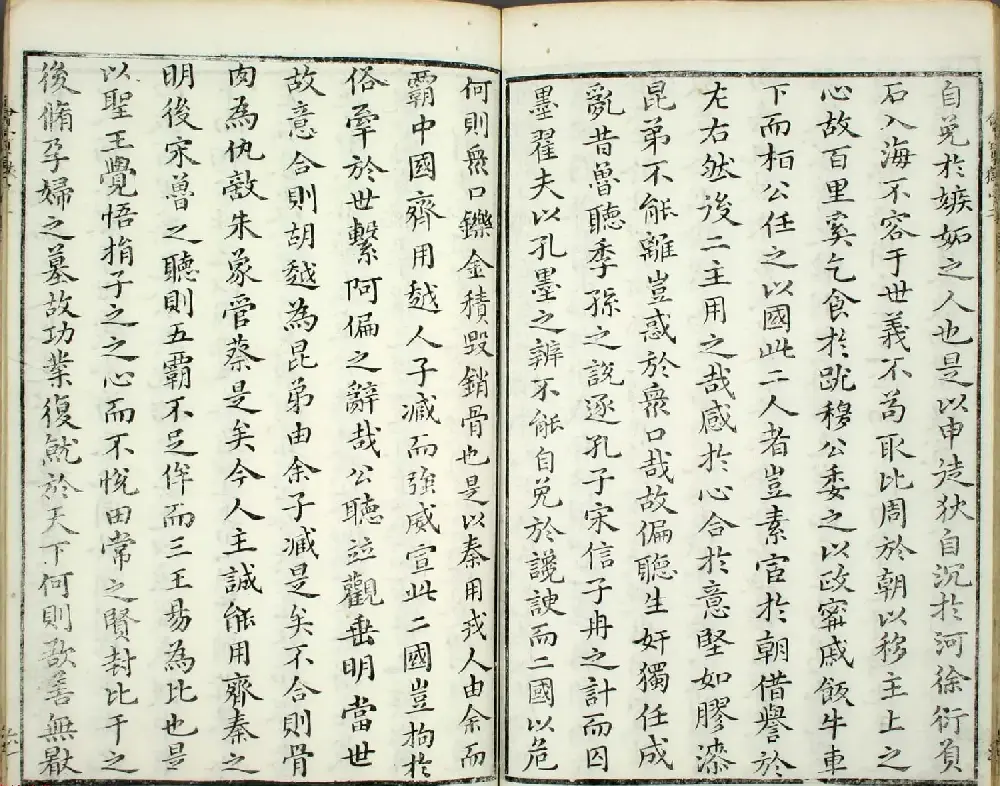 自免於嫉妬之人也是以申徒狄自沉於河徐衍負
石入海不容于世義不苟取比周於朝以移主上之
心故百里奚乞食於路穆公委之以政甯戚飯牛車
下而桓公任之以國此二人者豈素宦於朝借譽於
左右然後二主用之哉感於心合於意堅如膠漆
昆弟不能離豈惑於衆口哉故偏聽生奸獨任成
亂昔魯聽季孫之說逐孔子宋信子冉之計而囚
墨翟夫以孔墨之辨不能自免於讒諛而二國以危
何則衆口鑠金積毀銷骨也是以秦用戎人由余而
霸中國齊用越人子臧而強威宣此二國豈拘於
俗牽於世繫阿偏之辭哉公聽並觀垂明當世
故意合則胡越為昆弟由余子臧是矣不合則骨
肉為仇敵朱象管蔡是矣今人主誠能用齊秦之
明後宋魯之聽則五霸不足侔而三王易為比也是
以聖王覺悟捐子之之心而不悅田常之賢封比干之
後脩孕婦之墓故功業復就於天下何則欲善無厭